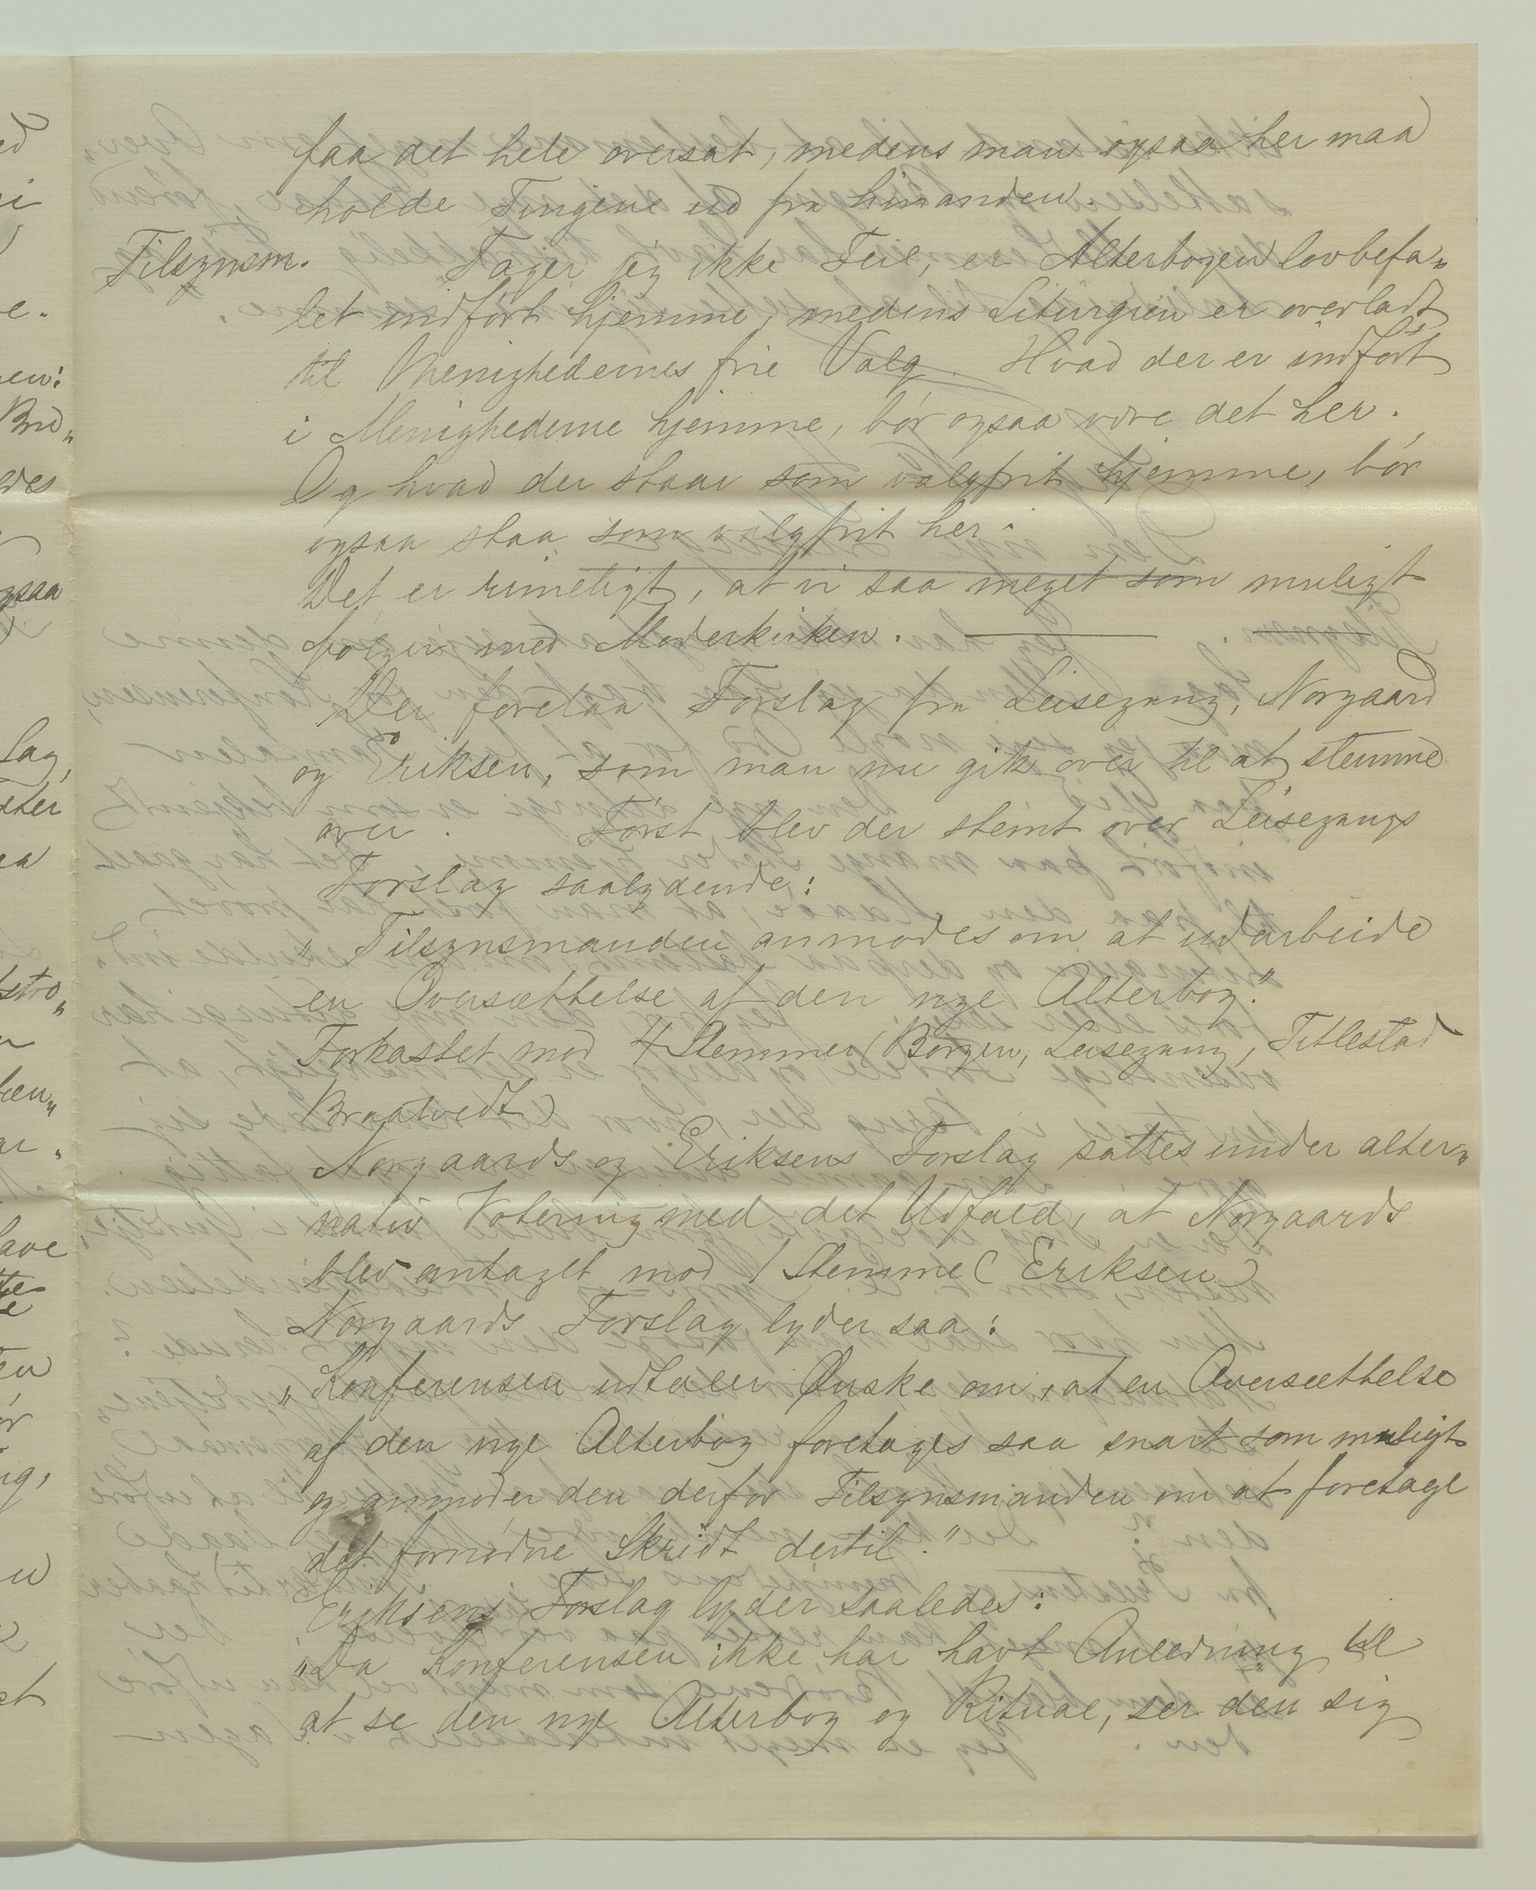 faa det hele oversat, medens man ogsaa her maa
holde Tingene ud fra hinanden.
Tilsynsm. Tager jeg ikke Feil, er Alterbogen lovbefa„
let indført hjemme, medens Liturgien er overladt
til Menighedernes frie Valg. Hvad der er indført
i Menighederne hjemme, bør ogsaa være det her.
Og hvad der staar som valgfrit hjemme, bør
ogsaa staa som valgfrit her.
Det er rimeligt, at vi saa meget som muligt
følger med Moderkirken.
Der forelaa Forslag fra Leisegang, Norgaard
og Eriksen, som man nu gik over til at stemme
over. Først blev der stemt over Leisegangs
Forslag saalydende:
„Tilsynsmanden anmodes om at udarbeide
en Oversættelse af den nye Alterbog."
Forkastet mod 4 Stemmer (Borgen, Leisegang, Titlestad
Braatvedt)
Norgaards og Eriksens Forslag sattes under alter„
nativ Votering med det Udfald, at Norgaards
blev antaget mod 1 Stemme (Eriksen)
Norgaards Forslag lyder saa:
„Konferensen udtaler Ønske om, at en Oversættelse
af den nye Alterbog foretages saa snart som muligt
og anmoder den derfor Tilsynsmanden om at foretage
det fornødne Skridt dertil."
Eriksens Forslag lyder saaledes:
„Da Konferensen ikke har havt Anledning til
at se den nye Alterbog og Ritual, ser den sig